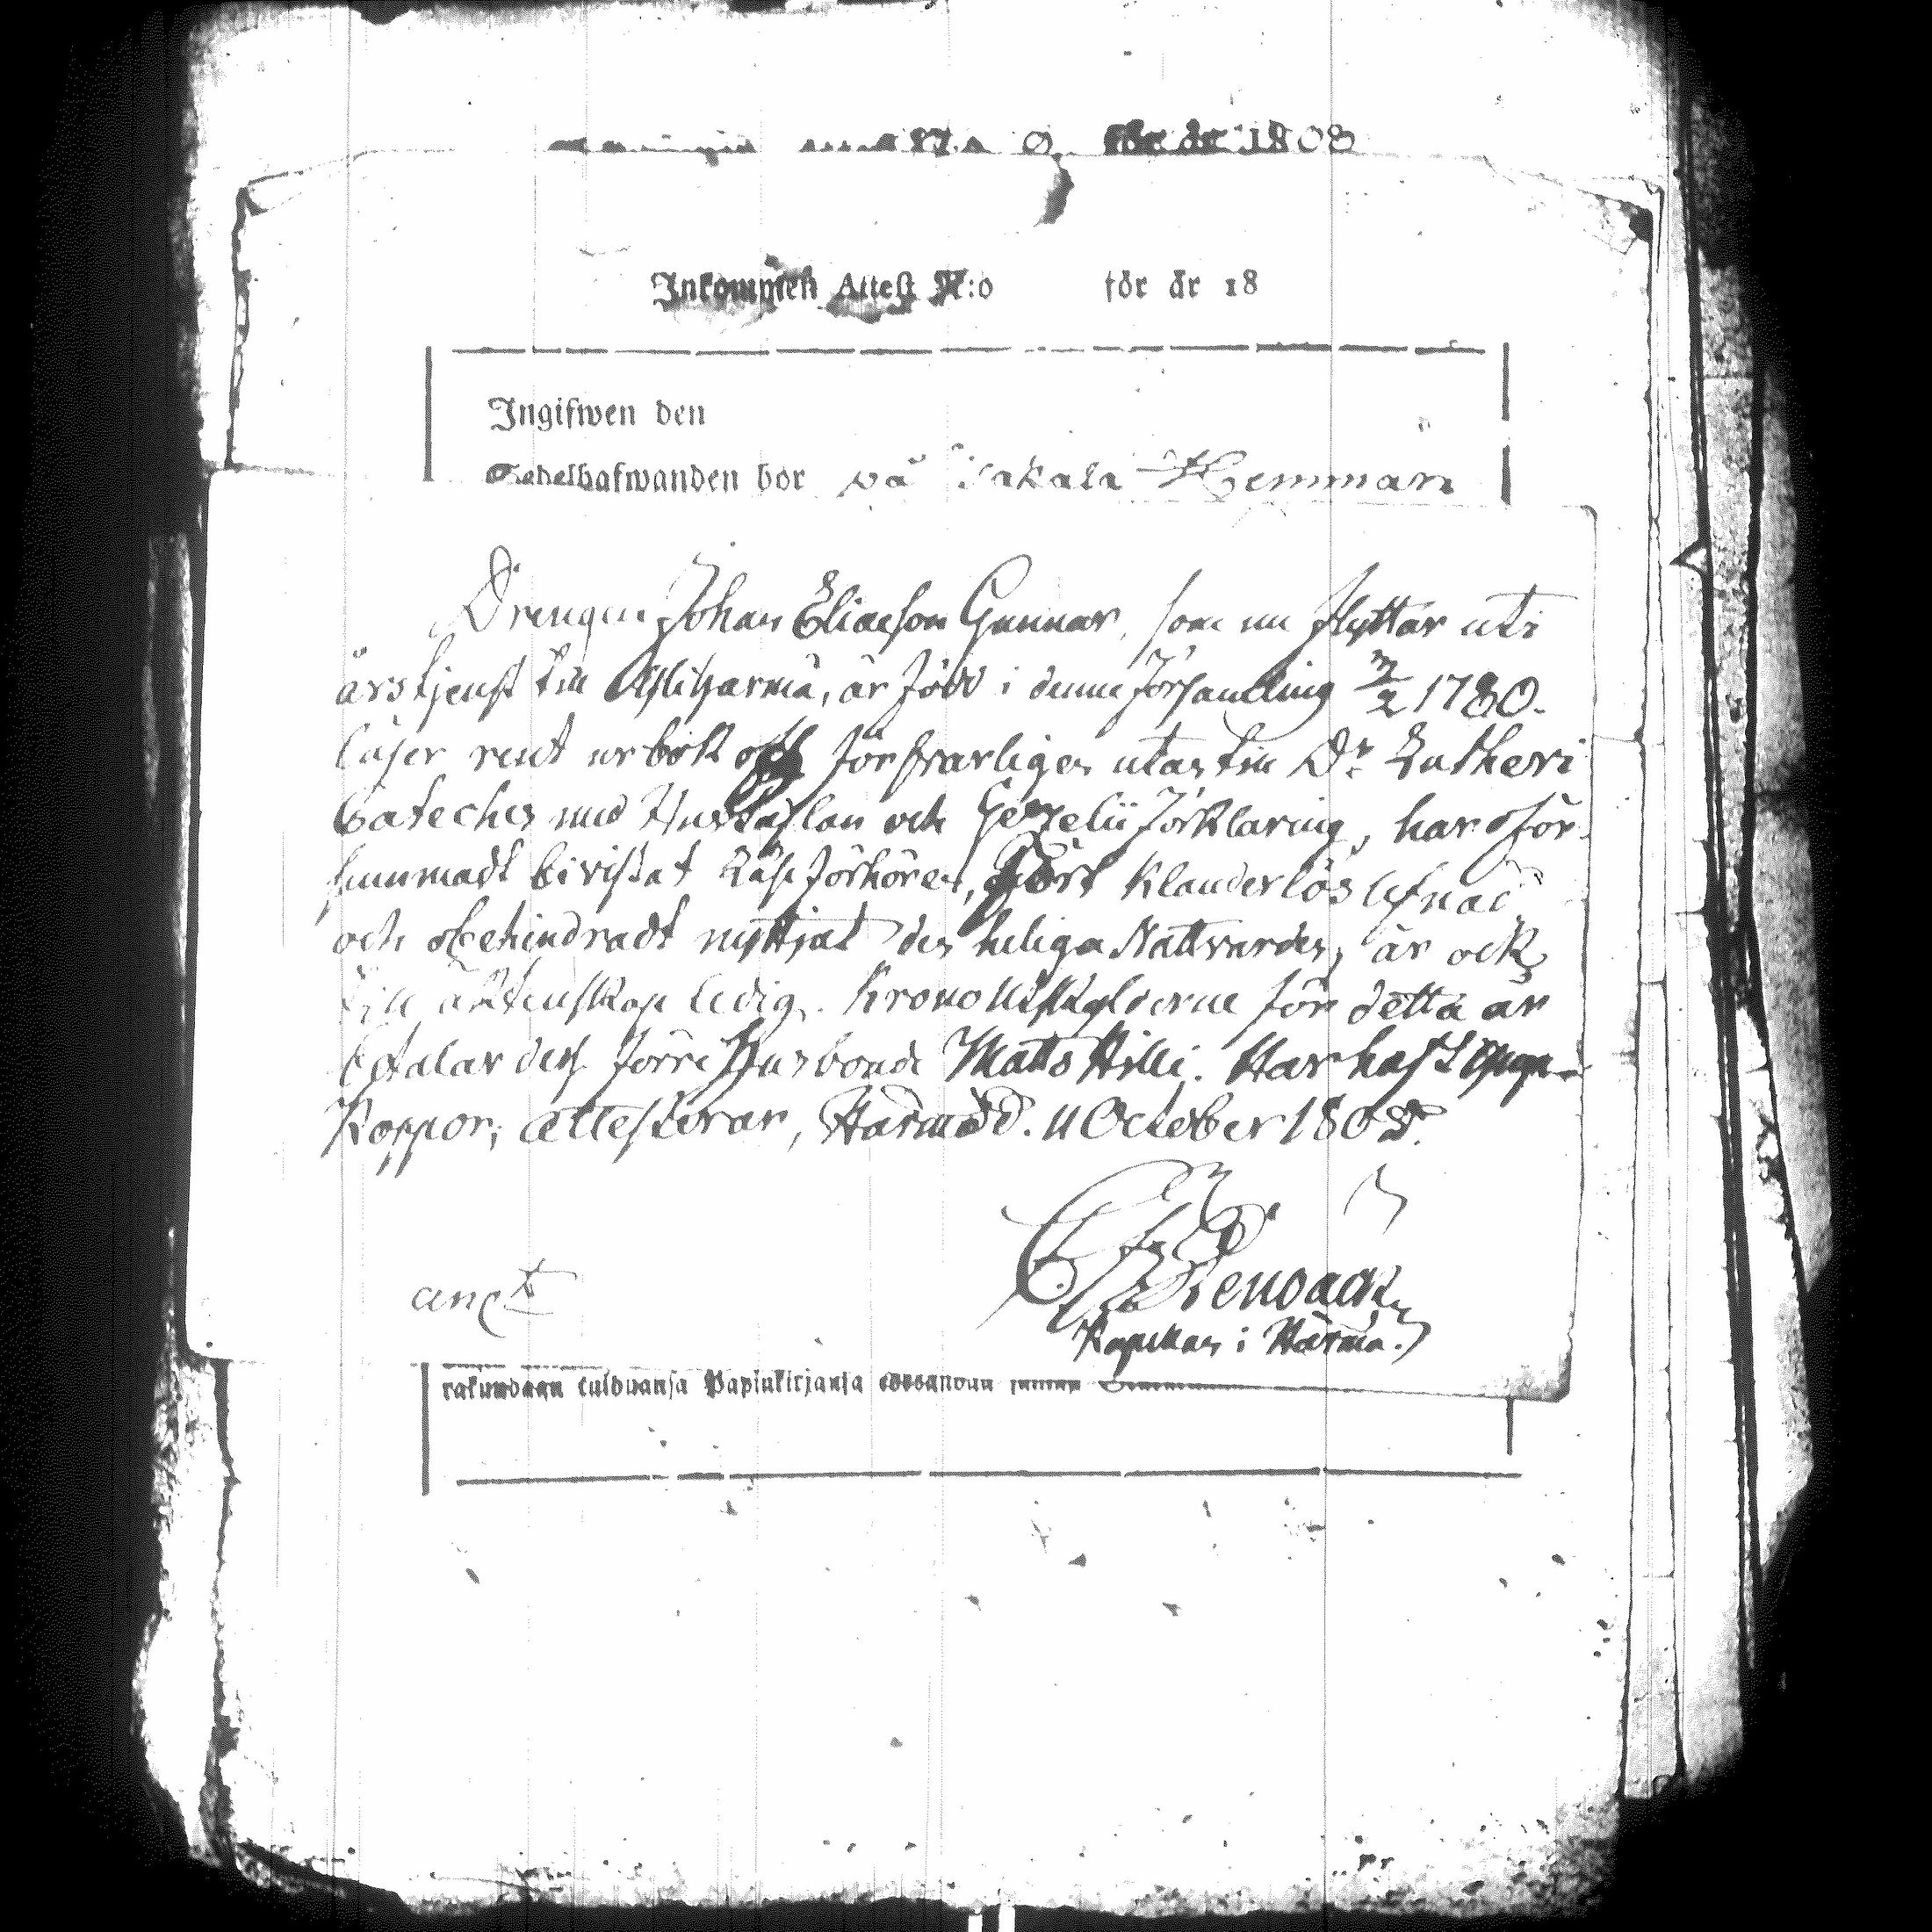 för år 1808
Inkommen Attest N:o för år 18
Ingifwen den
Sedelhafwanden bor på Hemman
Drengen Johan Eliaeson Gunnar, som nu flyttar uti
årstjenst till Ylihärmä, är född i denne församling 1780.
läser rent ur bok och försvarligen utantill Dr Lutheri
Cateches med Hustaflan och Gezelii förklaring, har oför-
summadt bivistat Läseförhören, fört klanderlös lefnad
och obehindradt nyttjat den heliga Nattvarden, är ock
till äktenskap ledig. Kronoutskylderne för detta år
betalar dess förre Husbonde Matts Hilli. Har haft
Koppor; attesterar, Härmä d. 11 October 1808.
Kapellan i Härmä.
rakundaan Papinkirjansa